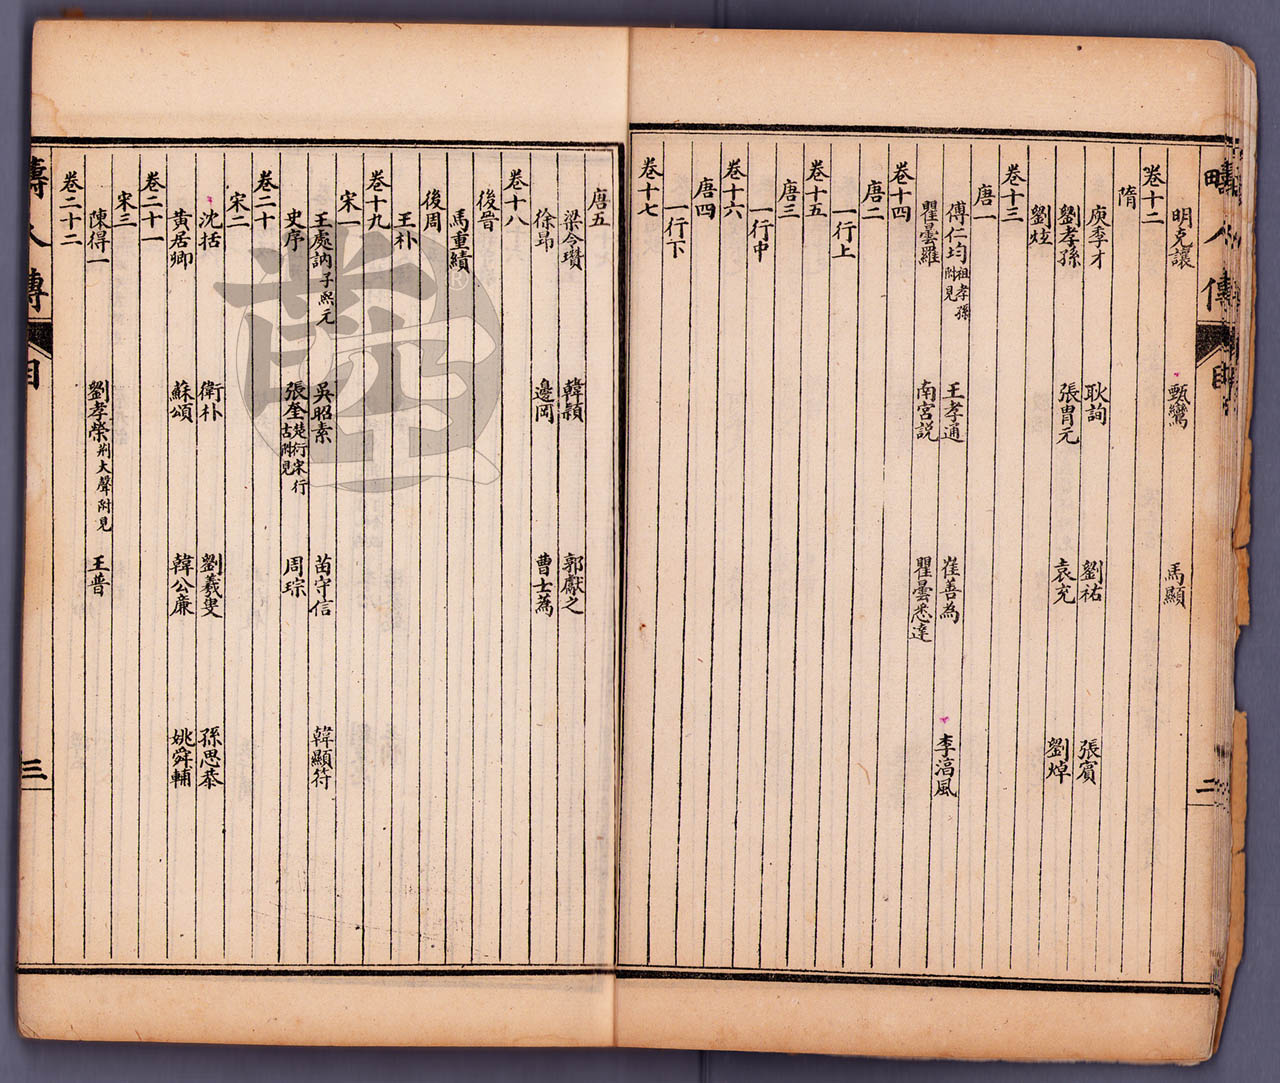 疇人傳 目 二
明克讓 甄鸞 馬顯
卷十二
隋
庾季才 耿詢 劉祐 張賓
劉孝孫 張胄元 袁充 劉焯
劉炫
卷十三
唐一
傅仁均祖孝孫附見 王孝通 崔善為 李淳風
瞿曇羅 南宮説 瞿曇悉達
卷十四
唐二
一行上
卷十五
唐三
一行中
卷十六
唐四
一行下
卷十七
唐五
梁令瓚 韓穎 郭獻之
徐昂 邊岡 曹士為
卷十八
後晉
馬重績
後周
王朴
卷十九
宋一
王處訥子熙元 吳昭素 苗守信 韓顯符
史序 張奎楚衍宋行古附見 周琮
卷二十
宋二
沈括 衛朴 劉羲叟 孫思恭
黃居卿 蘇頌 韓公廉 姚舜輔
卷二十一
宋三
陳得一 劉孝榮荊大聲附見 王普
卷二十二
疇人傳 目 三